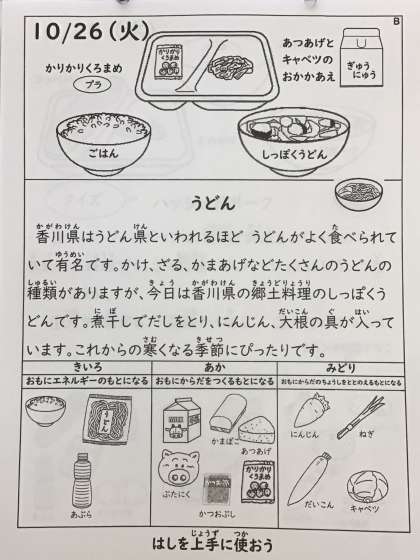 10/26(火)
B
かりかりくろまめ
プラ
かりかり
くろまめ
あつあげと
キャベツの
おかかあえ
ぎゅう
にゅう
ごはん
しっぽくうどん
うどん
香川県はうどん県といわれるほど うどんがよく食べられて
いて有名です。かけ、ざる、かまあげなどたくさんのうどんの
種類がありますが、今日は香川県の郷土料理のしっぽくう
どんです。煮干しでだしをとり、にんじん、大根の具が入って
います。これからの寒くなる季節にぴったりです。
きいろ
おもにエネルギーのもとになる
うどん
あぶら
あか
おもにからだをつくるもとになる
かまぼこ
あつあげ
ぶたにく
かつおぶし
かりかり
くろまめ
みどり
おもにからだのちょうしをととのえるもとになる
にんじん
ねぎ
だいこん
キャベツ
はしを上手に使おう